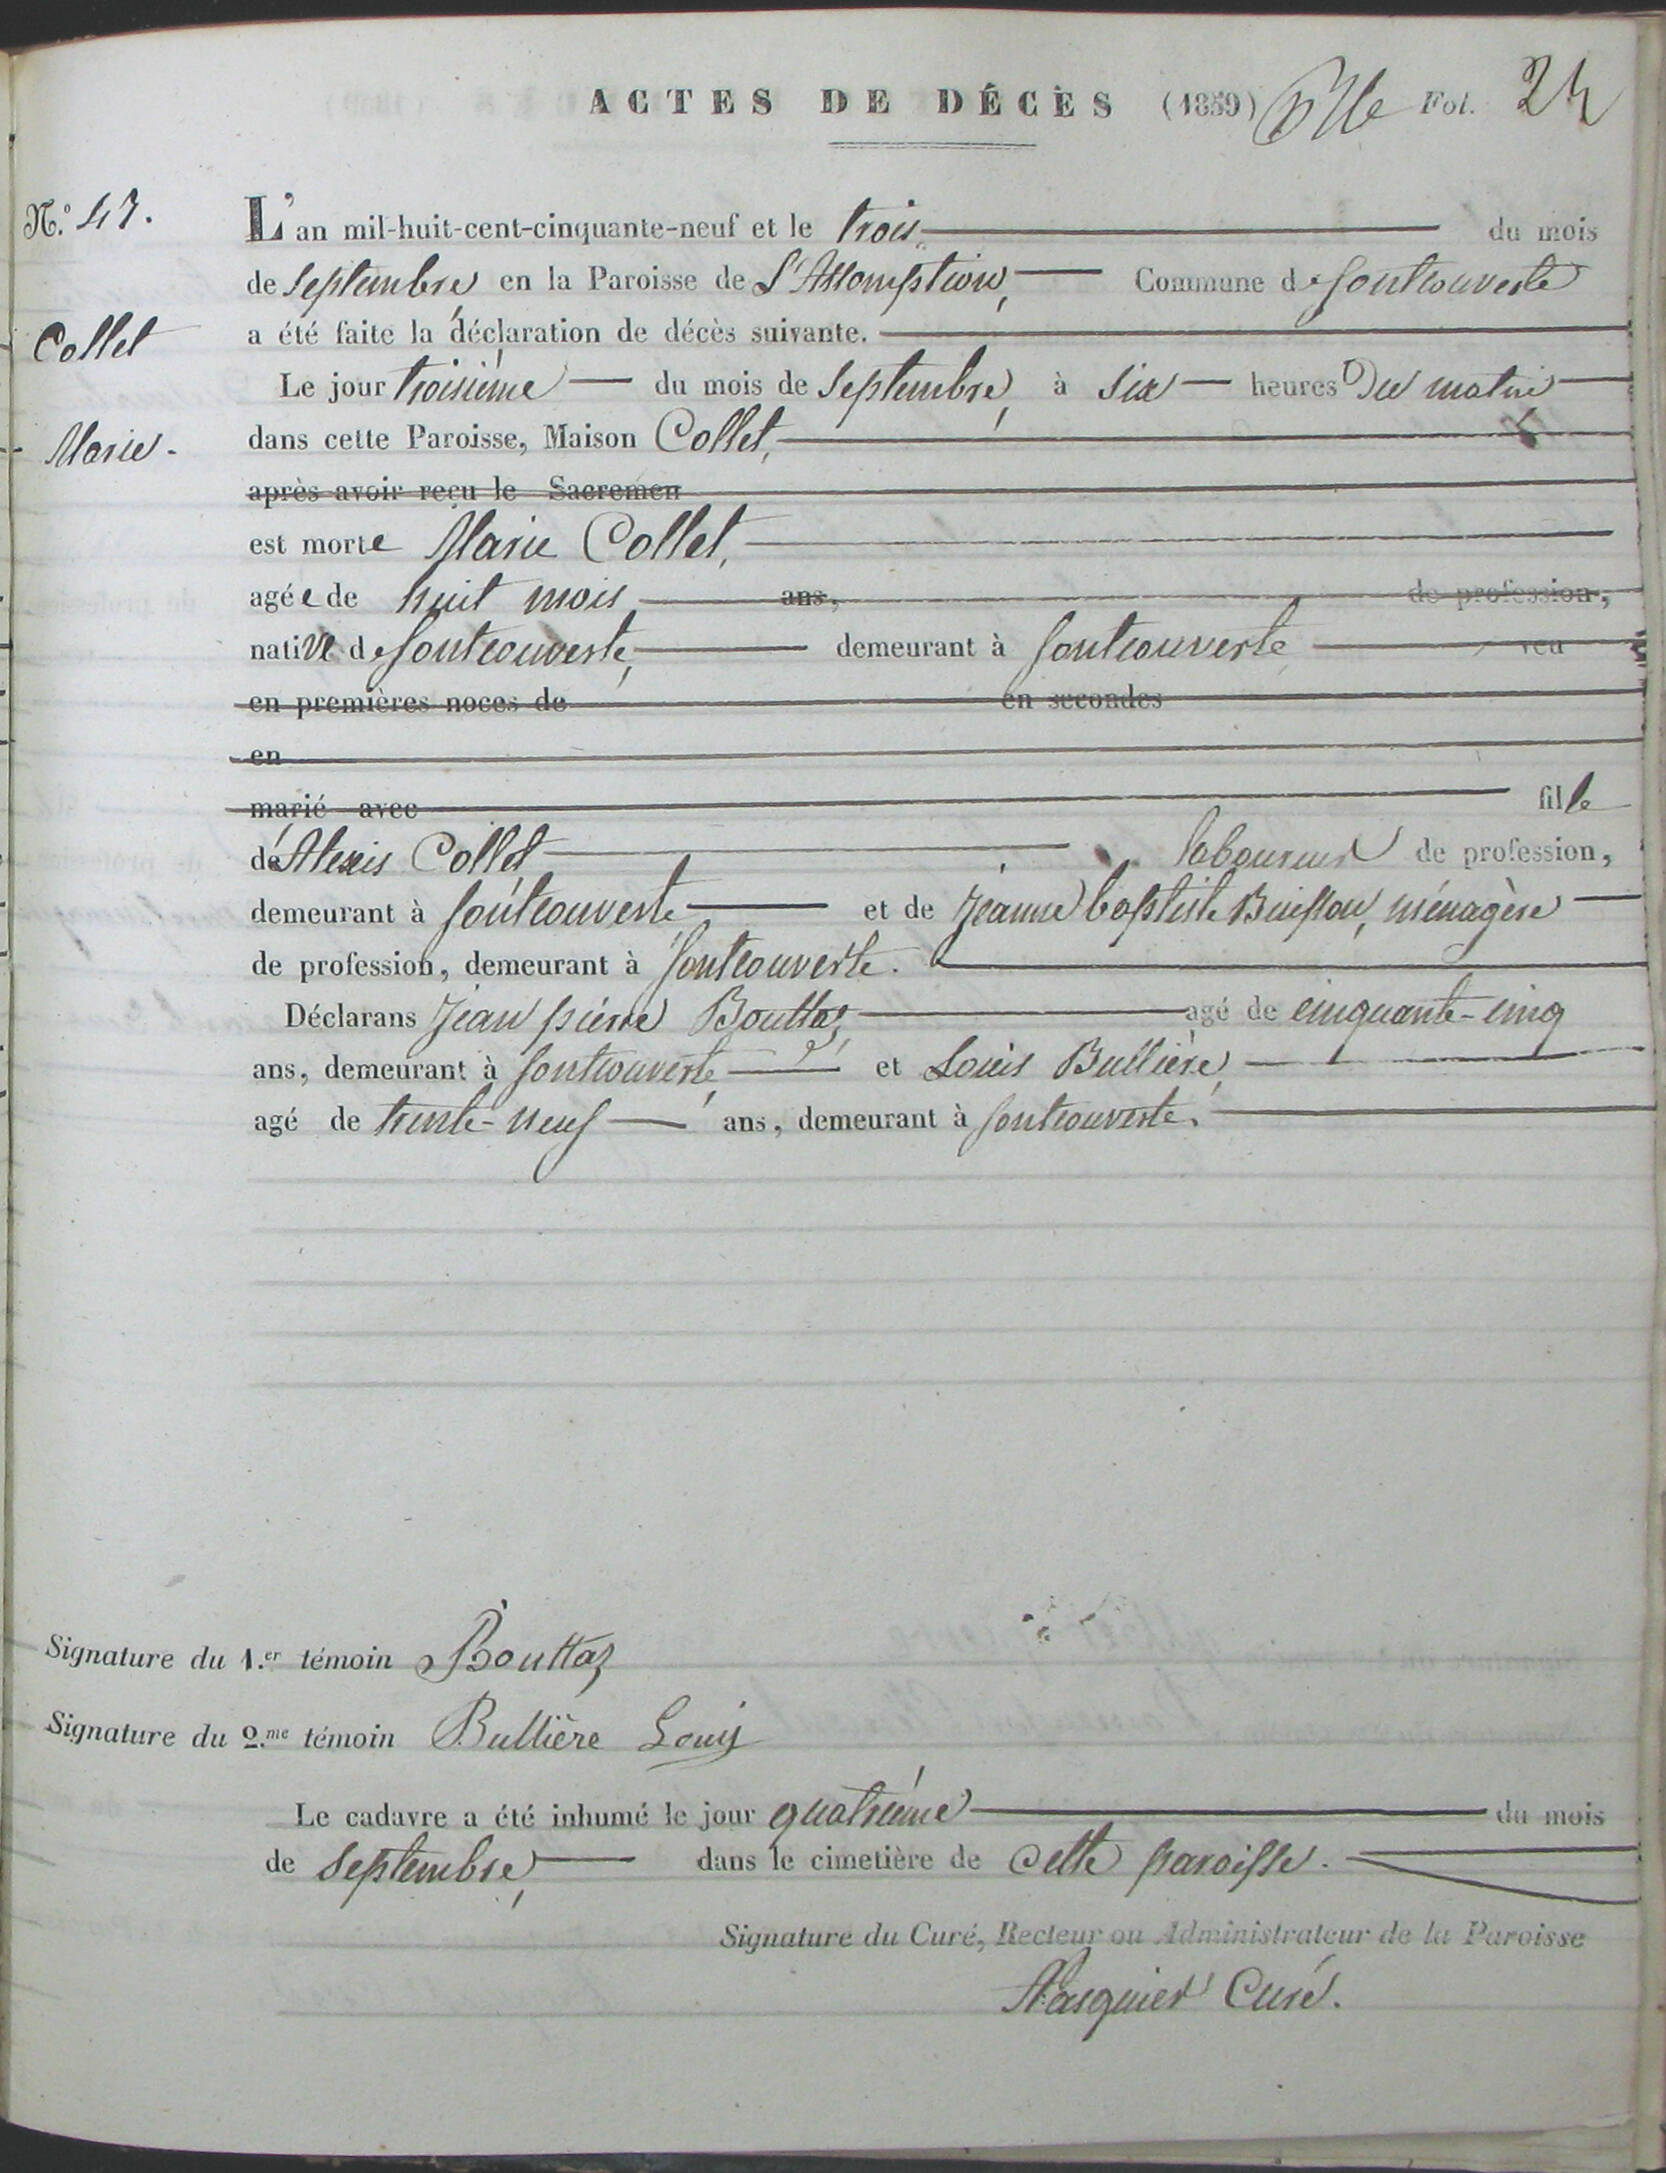 ACTES DE DÉCÈS (1859) Fol. 24
N.º 47.
L'an mil-huit-cent-cinquante-neuf et le trois du mois
de septembre en la Paroisse de L'Assomption, Commune de fontcouverte
Collet
a été faite la déclaration de décès suivante.
Le jour troisième du mois de septembre, à six heures Du matin
Marie.
dans cette Paroisse, Maison Collet,
après avoir reçu le Sacremen
est morte Marie Collet,
agée de huit mois ans, de profession,
native de fontcouverte, demeurant à fontcouverte veu
en premières noces de en secondes
en
marié avec fille
de Alexis Collet laboureur de profession,
demeurant à fontcouverte et de Jeanne baptiste Buisson, ménagère
de profession, demeurant à fontcouverte.
Déclarans Jean pierre Bouttaz, agé de cinquante-cinq
ans, demeurant à fontcouverte et Louis Bullière,
agé de trente-neuf ans, demeurant à fontcouverte.
Signature du 1.er témoin Bouttaz
Signature du 2.me témoin Bullière Louis
Le cadavre a été inhumé le jour quatrième du mois
de septembre, dans le cimetière de cette paroisse.
Signature du Curé, Recteur ou Administrateur de la Paroisse
Curé.